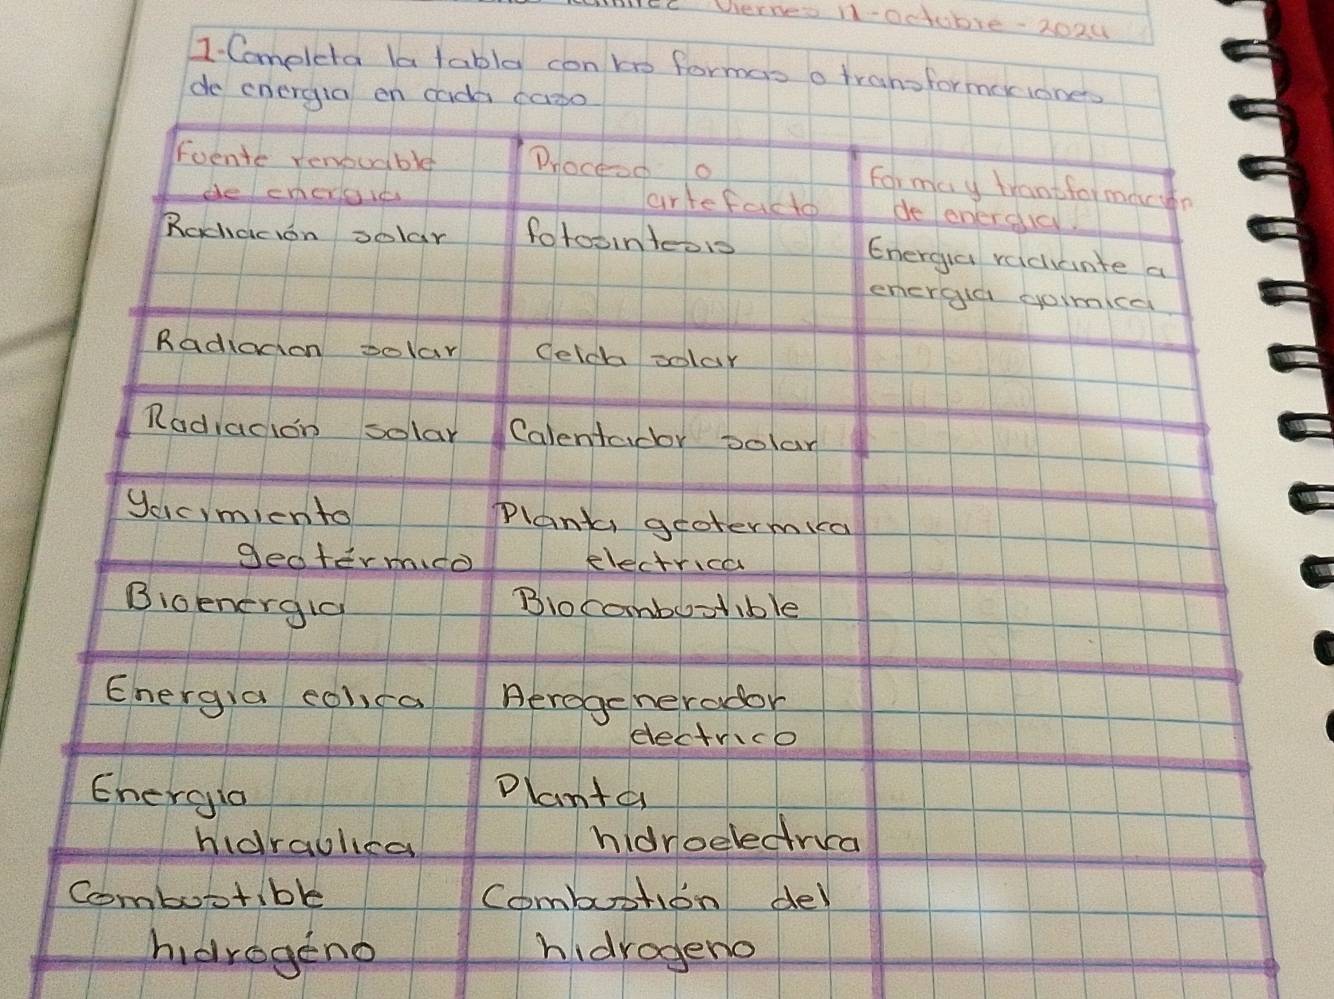 Viernes 11-octubre-2024
1-Completa la tabla con las formas o transformaciones
de energia en cada caso
Fuente renovable
de energia
Proceso o
artefacto
Forma y transformación
de energia.
Radiación solar
fotosintesis
Energia radiante a
energia quimica
Radiacion solar
Celda solar
Radiación solar
Calentador solar
Yacimiento
geotérmico
Planta geotermica
electrica
Bioenergia
Biocombustible
Energia eolica
Aerogenerador
electrico
Energia
hidraulica
Planta
hidroelectrica
Combustible
hidrogéno
Combustión del
hidrogeno